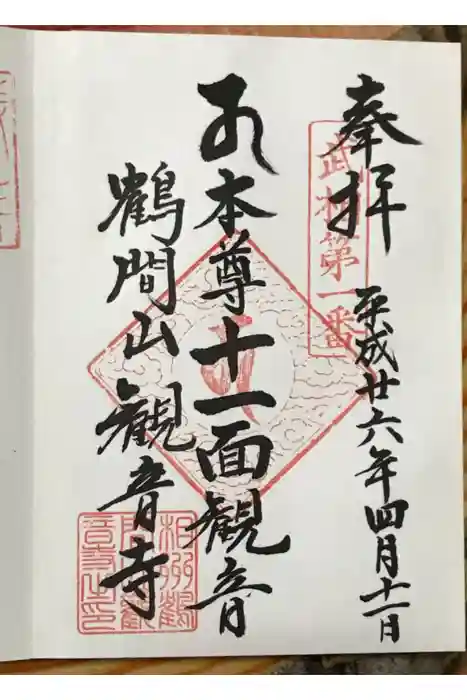 奉拝
武相第一番
平成廿六年四月十一日
本尊十一面観音
鶴間山観音寺